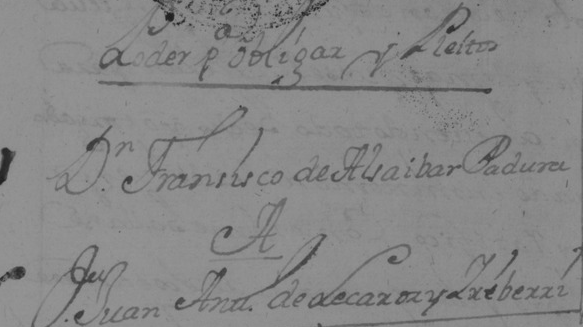 Poder pa obligar y Pleitos
Dn. Francisco de Alsaibar Padura
A
Juan Anto. de Lecaroz y